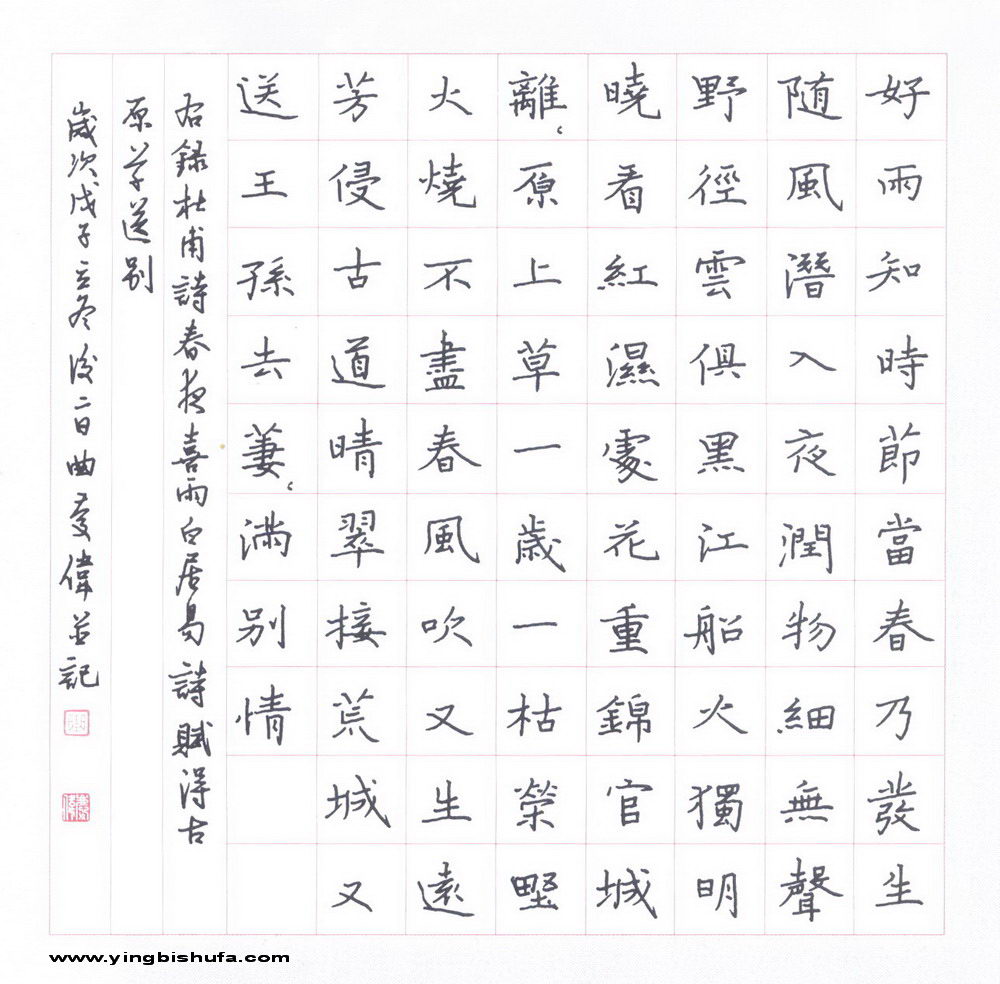 好雨知時節當春乃發生
随風潛入夜潤物細無聲
野徑雲俱黑江船火獨明
曉看紅濕處花重錦官城
離〻原上草一歲一枯榮野
火燒不盡春風吹又生遠
芳侵古道晴翠接荒城又
送王孫去萋〻滿别情
右録杜甫詩春夜喜雨白居易詩賦得古
原草送别
歲次戊子立冬後二日曲慶偉並記
www.yingbishufa.com